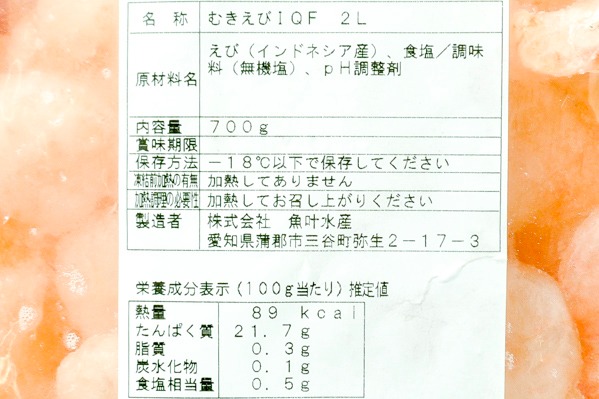 名 称 むきえびIQF 2L
原材料名 えび(インドネシア産)、食塩/調味
料(無機塩)、pH調整剤
内容量 700g
賞味期限
保存方法 -18℃以下で保存してください
凍結前加熱の有無 加熱してありません
加熱調理の必要性 加熱してお召し上がりください
製造者 株式会社 魚叶水産
愛知県蒲郡市三谷町弥生2-17-3
栄養成分表示(100g当たり)推定値
熱量 89 kcal
たんぱく質 21.7g
脂質 0.3g
炭水化物 0.1g
食塩相当量 0.5g